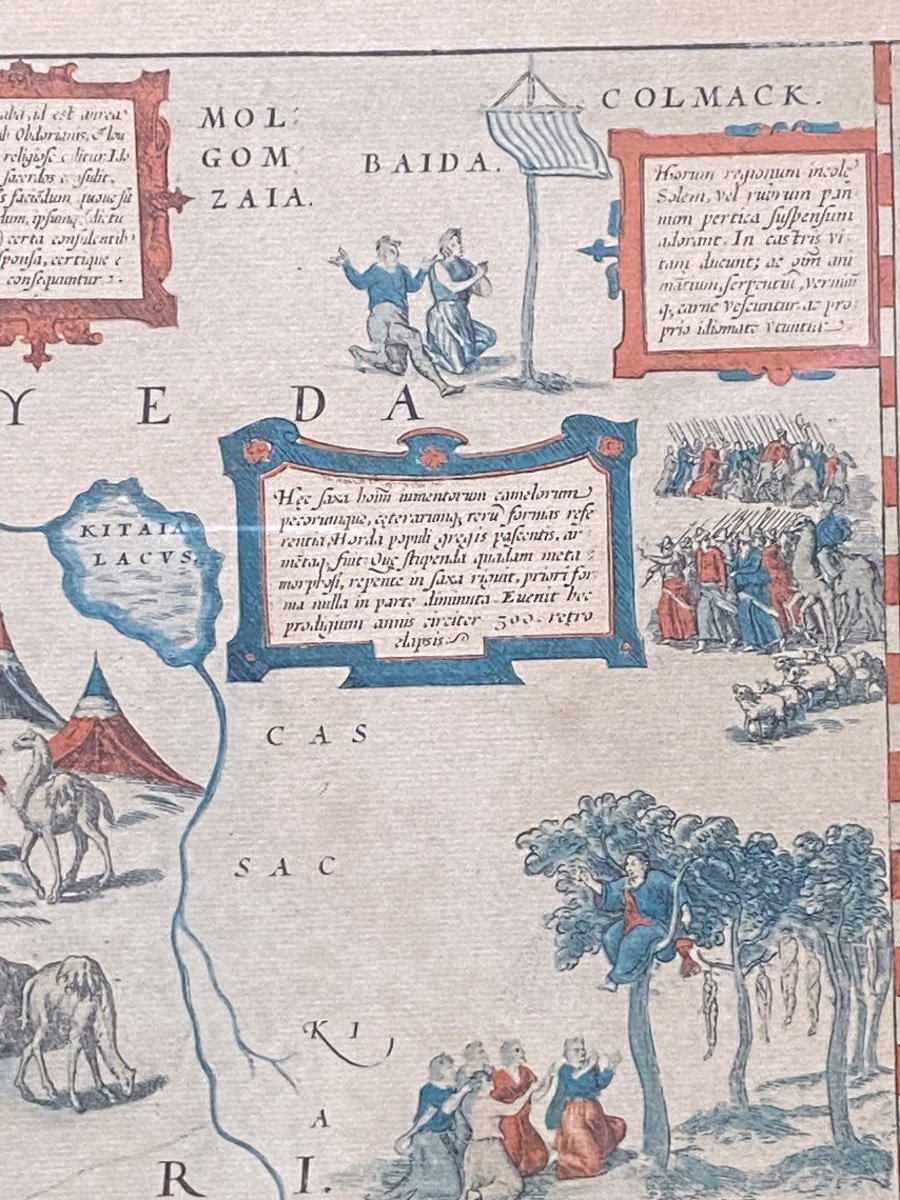 MOL:
GOM
ZAIA.
BAIDA.
COLMACK.
id est aurea
Obdorianis, &
religiose colitur
sacerdos cōsulit,
faciēdum, quove sit
ipsumq; dictu
certa consulentib9
sponsa, certique e
consequuntur.
Horum regionum incolę
Solem, vel rubrum pan-
num pertica suspensum
adorant. In castris vi-
tam ducunt; ac oīm ani-
mantium, serpentiū, vermiūq
q, carne vescuntur. ac pro-
prio idiomate utuntur.
Y E D A
Hęc saxa hoīm iumentorum camelorum
pecorumque, cęterarumq, rerū formas refe
rentia, Horda populi gregis pascentis, ar-
mētaq, fuit. Quę stupenda quadam meta-
morphosi, repente in saxa riguit, priori for-
ma nulla in parte diminuta. Euenit hoc
prodigium annis circiter 300. retro
elapsis.
KITAIA
LACVS.
CAS
SAC
KI
A
R I.